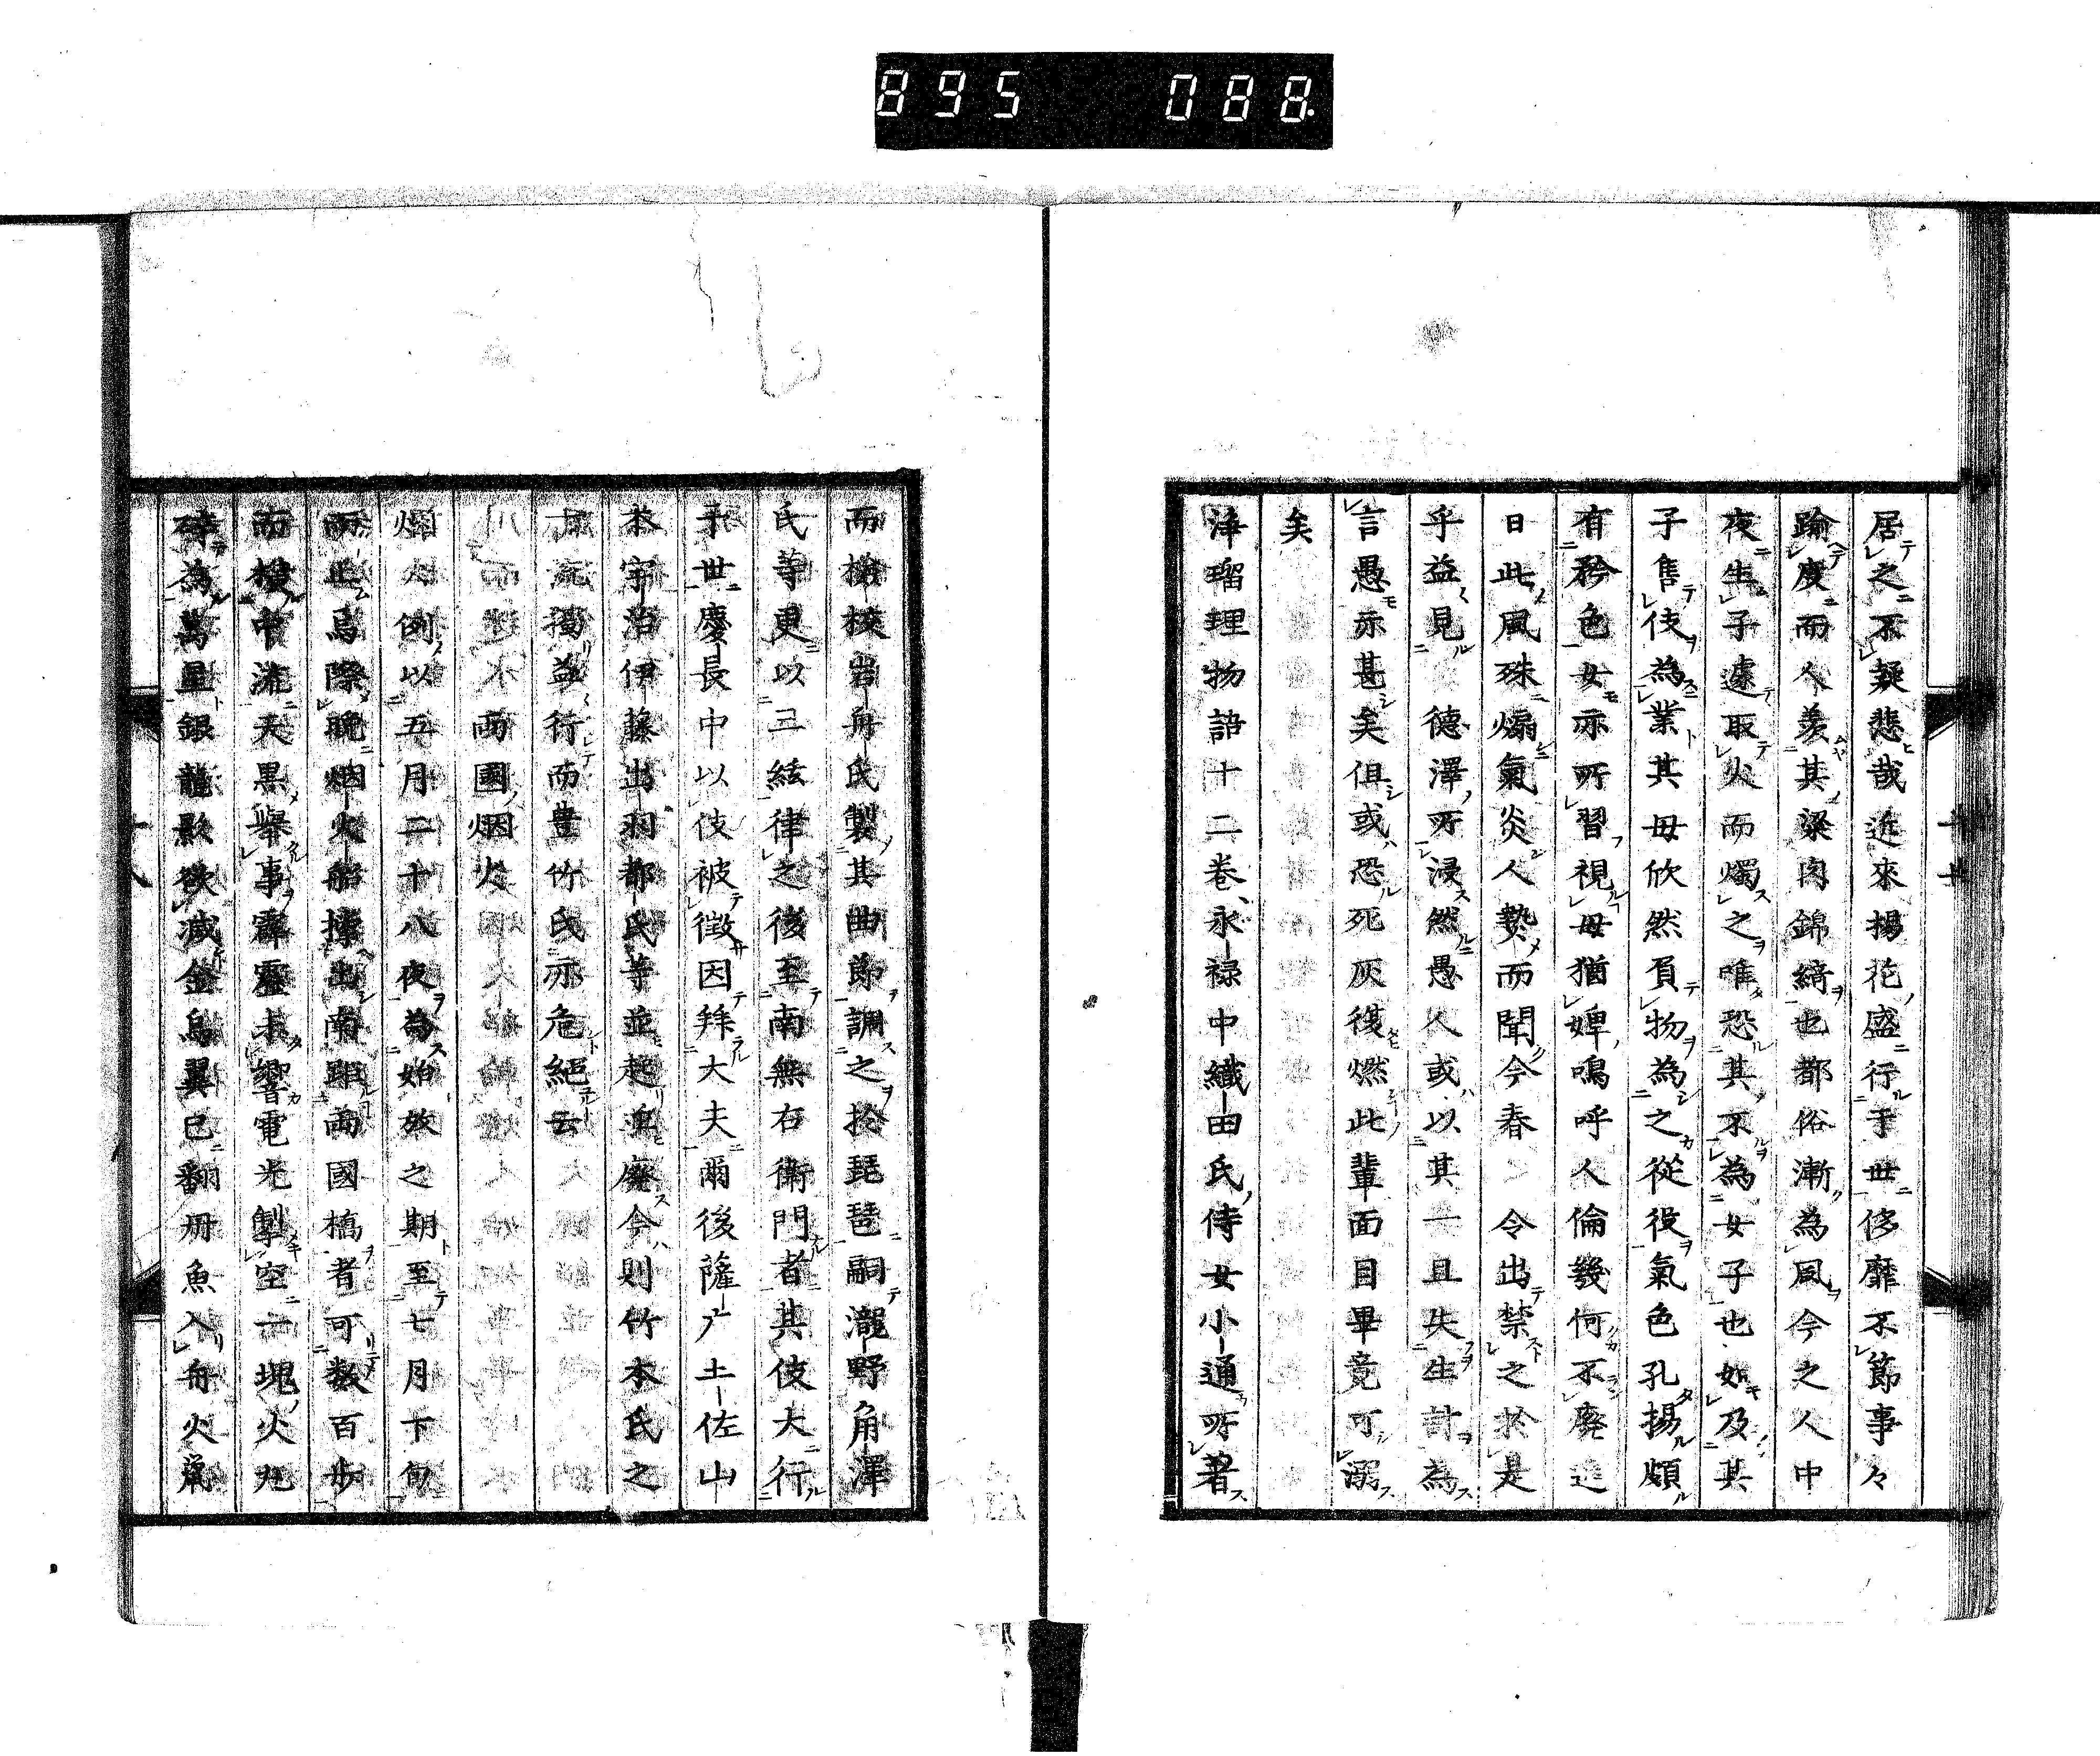 895 088
居之不疑悲哉近來揚花盛行于世侈靡不節事々
踰度而人羨其粱肉錦綺也都俗漸為風今之人中
夜生子遽取火而燭之唯恐其不為女子也如及其
子售伎為業其母欣然負物為之從役氣色孔揚頗
有矜色女亦所習視母猶婢嗚呼人倫幾何不廢這
日此風殊煽氣炎人蓺而聞今春 令出禁之於是
乎益見 德澤所浸然愚人或以其一旦失生計為
言愚亦甚矣但或恐死灰復燃此輩面目畢竟可溺
矣
淨瑠理物語十二卷永祿中織田氏侍女小通所著
而檢校岩舟氏製其曲節調之於琵琶嗣瀧野角澤
氏等更以三絃律之後至南無右衛門者其伎大行
于世慶長中以伎被徵因拜大夫爾後薩戶土佐山
本宇治伊藤出羽都氏等並起並廢今則竹本氏之
流獨益行而豊竹氏亦危絕云
兩國烟火
烟火例以五月二十八夜為始放之期至七月下旬
而止烏際晚烟火船撐出南距兩國橋者可数百步
而橫中流天黒舉事霹靂未響電光掣空一塊火丸
碎為萬星銀龍影欲滅金烏翼已翻丹魚入舟火鼠